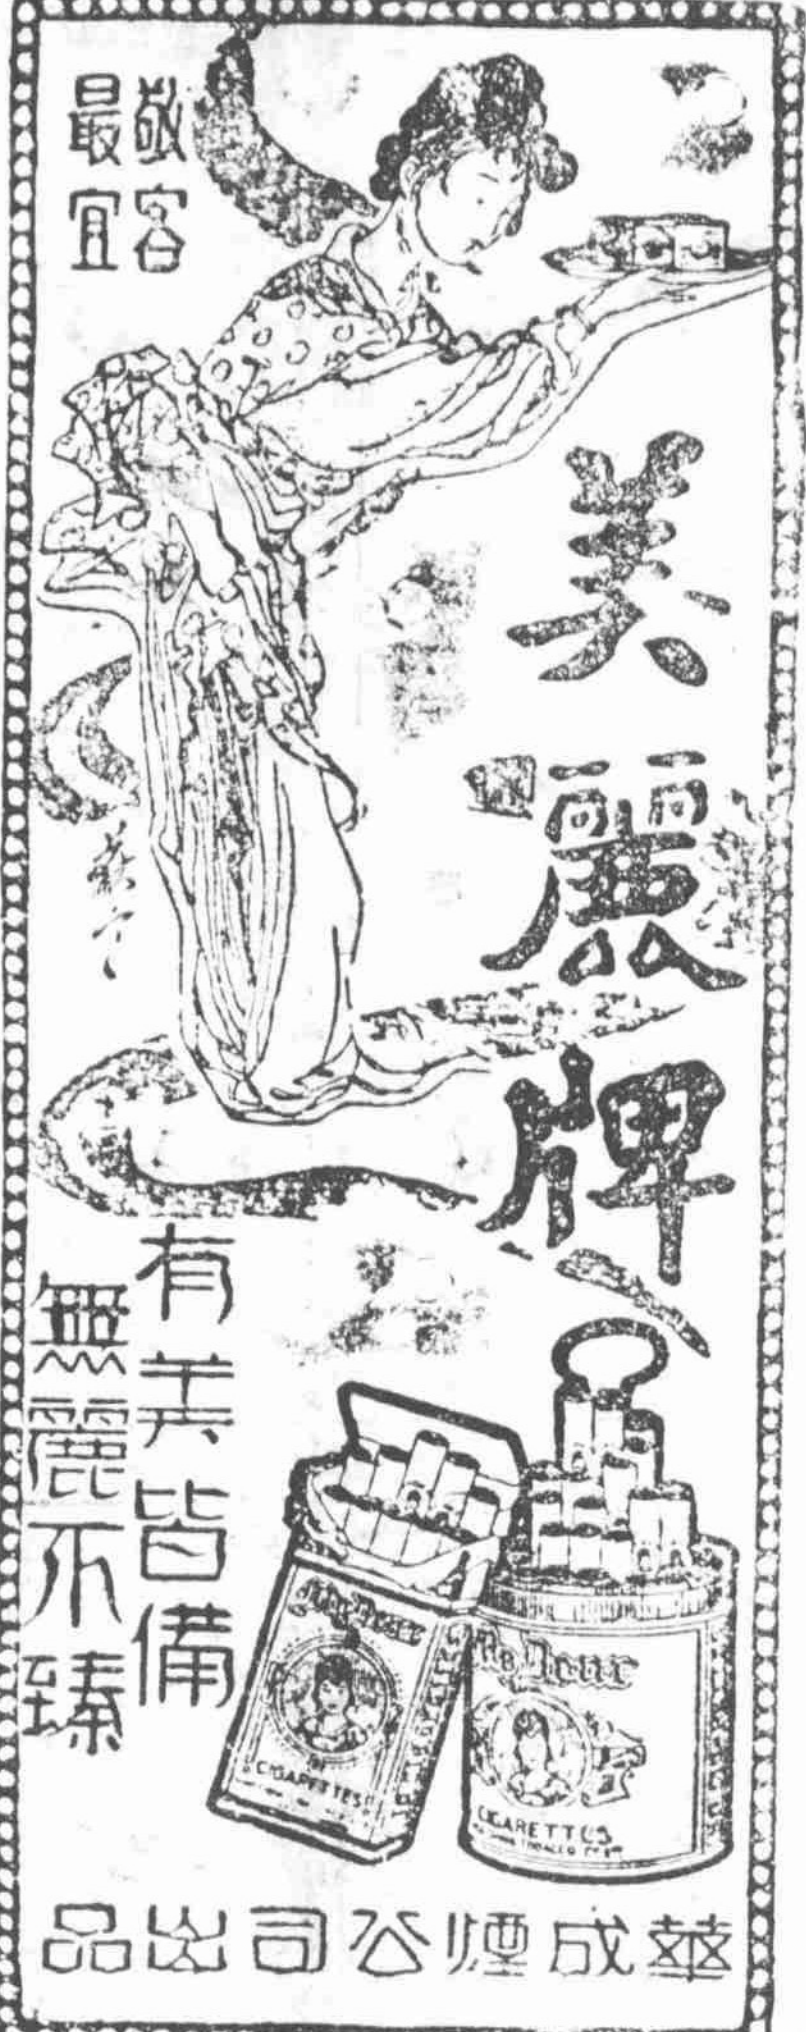 敬客
最宜
美麗牌
有美皆備
無麗不臻
My Dear
CIGARETTES
My Dear
CIGARETTES
華成煙公司出品